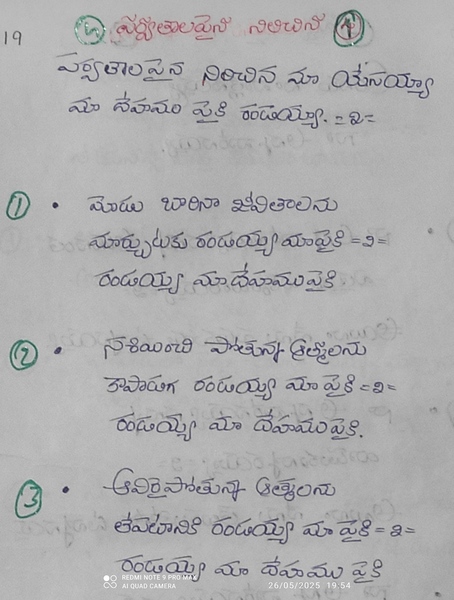 19
పర్వతాలపైనే నిలిచిన
పర్వతాల పైన నిలిచిన మా యేసయ్యా
మా దేహము పైకి రండయ్యా. =2=
① • మోడు బారినా జీవితాలను
మార్చుటకు రండయ్య మా పైకి =2=
రండయ్య మా దేహము పైకి.
② • నశియించి పోతున్న ఆత్మలను
కాపాడగ రండయ్య మా పైకి =2=
రండయ్య మా దేహము పైకి.
③ • ఆవిరైపోతున్న ఆత్మలను
లేపటానికి రండయ్య మా పైకి =2=
రండయ్య మా దేహము పైకి
REDMI NOTE 9 PRO MAX
AI QUAD CAMERA
26/05/2025 19:54